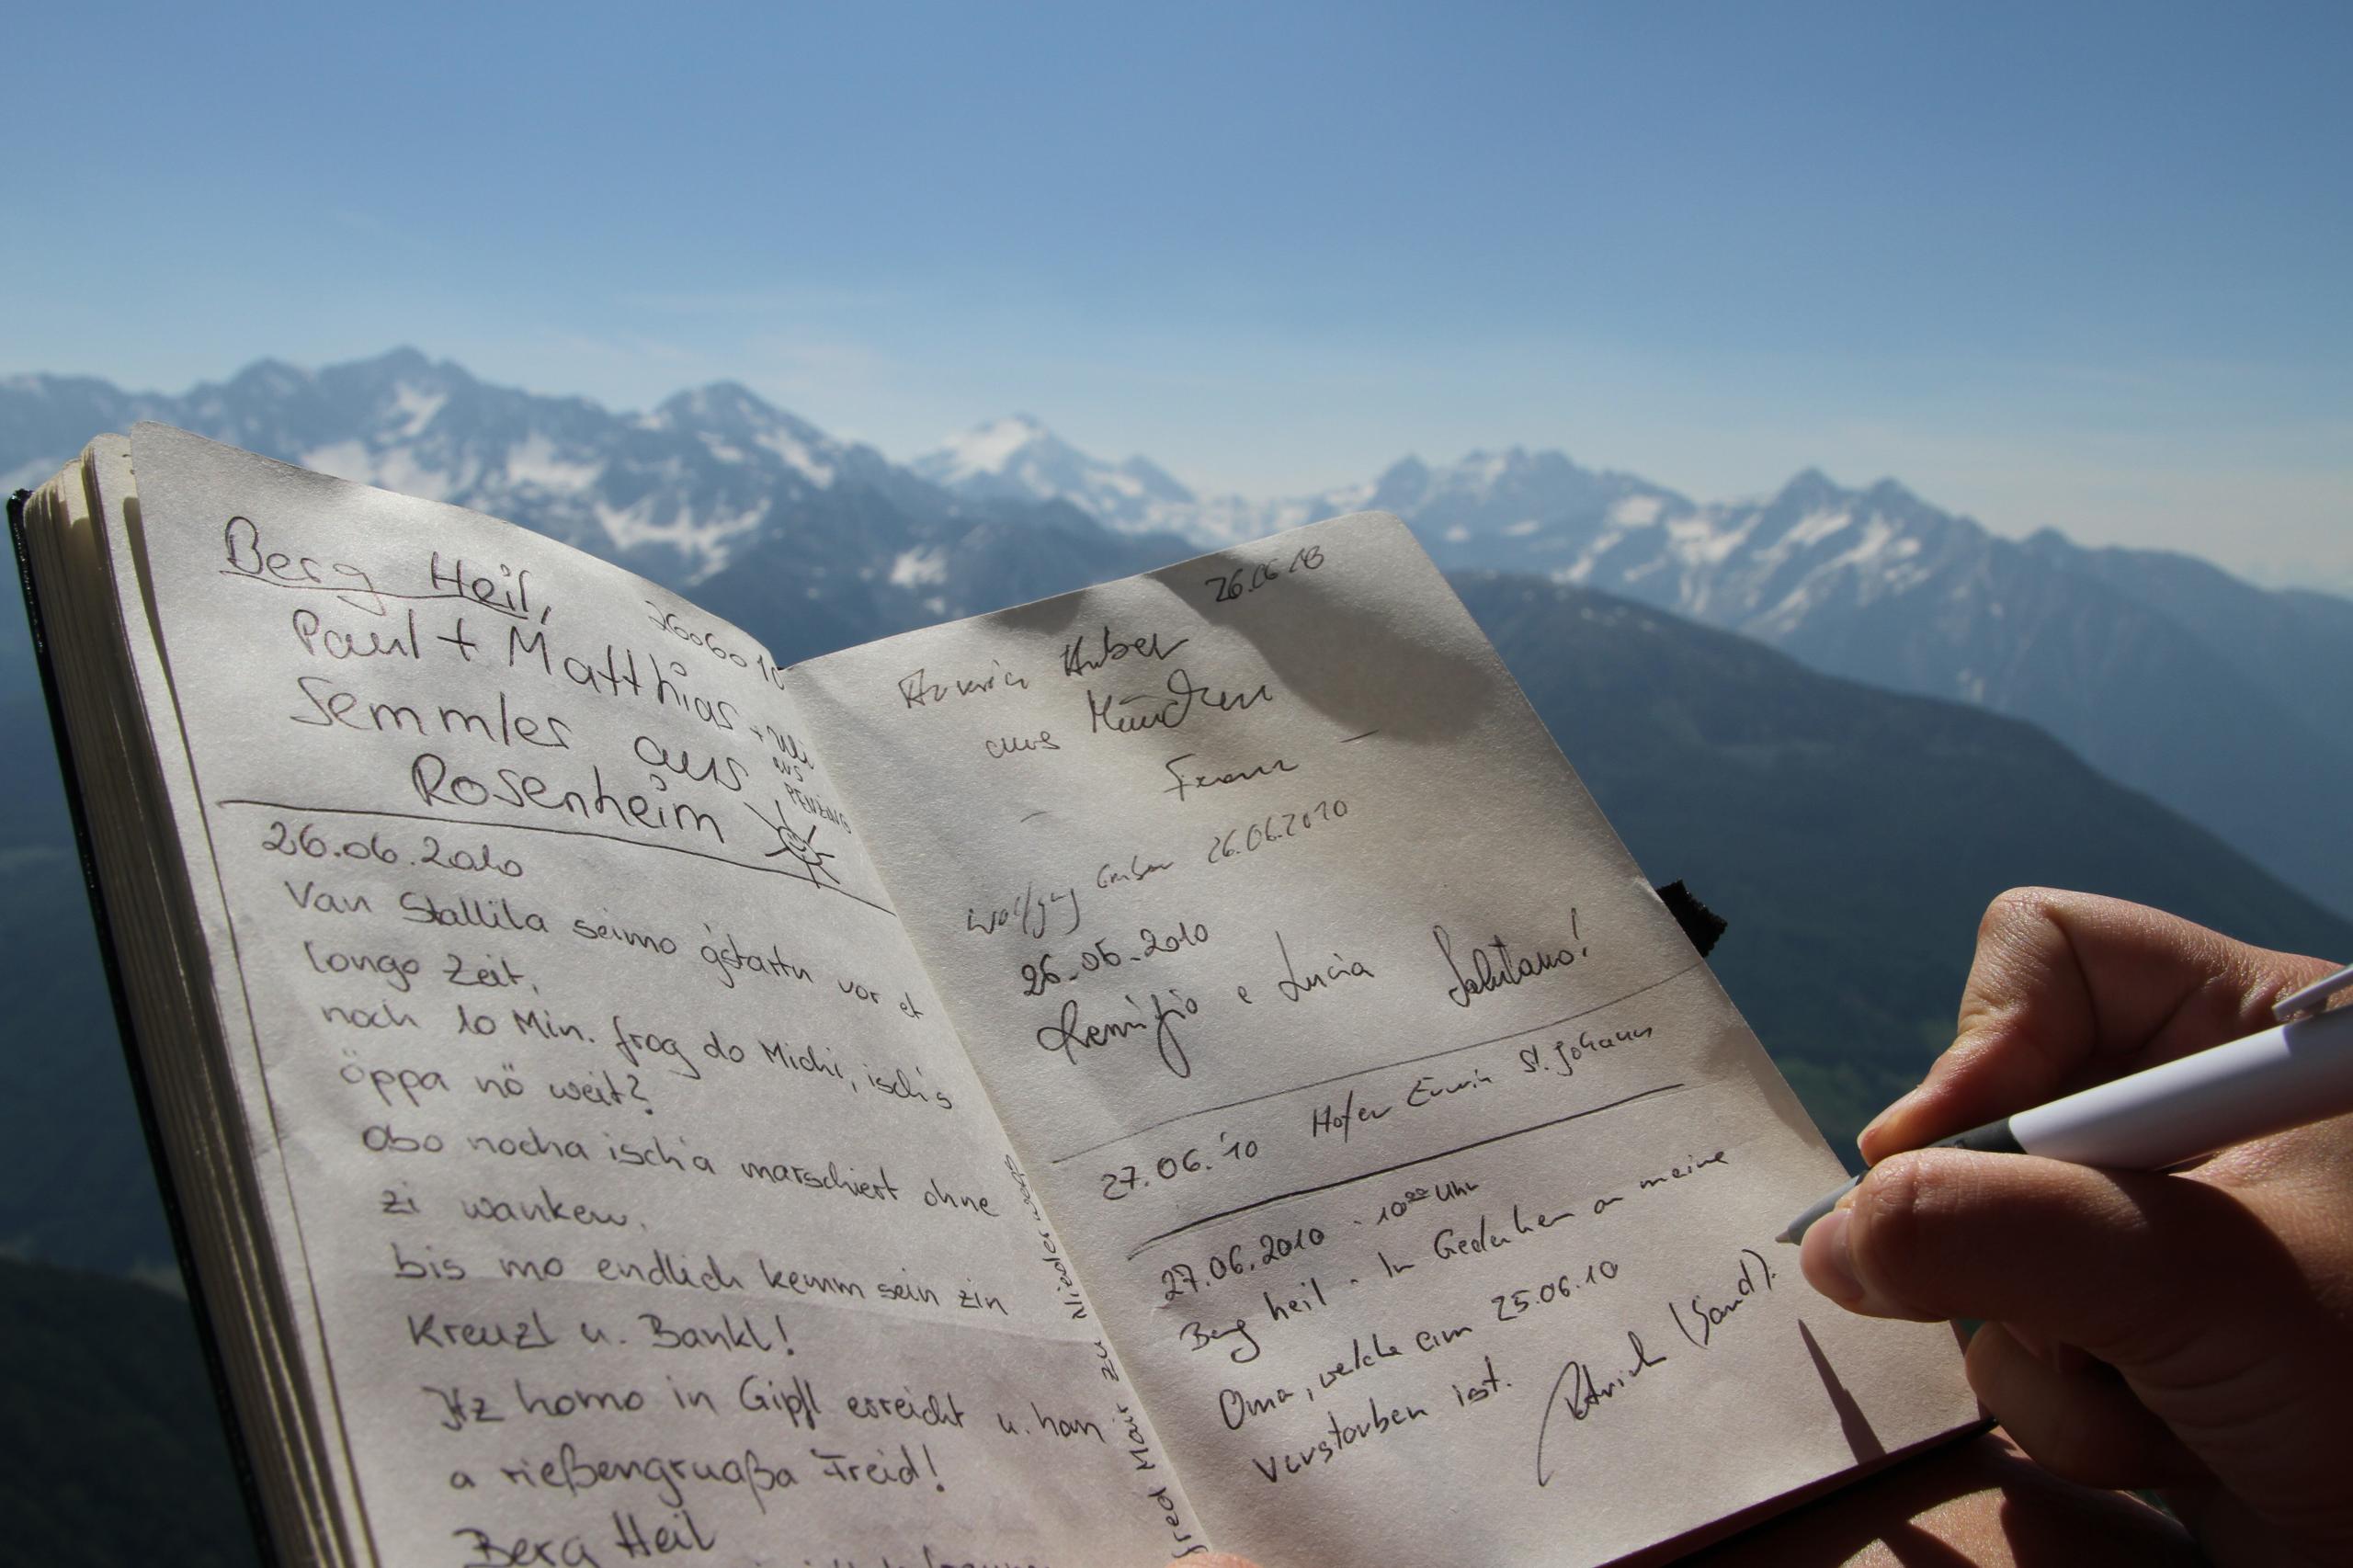 Berg Heil,
26.06.10
Paul + Matthias
Semmler aus
Rosenheim
aus
26.06.2010
Van Stallila seimo g'startn vor et
longo Zeit,
noch 10 Min. frog do Michi, isch's
öppa nö weit?
Obo nocha isch a marschiert ohne
zi wanken,
bis mo endlich kemm sein zin
Kreuzl u. Bankl!
Itz homo in Gipfl erreicht u. han
a rießengruaßa Freid!
Berg Heil
Mair zu Niederwegs
26.06.10
Huber
aus München
Franz
Wolfgang Gruber 26.06.2010
26.06.2010
Remigio e Lucia Salutano!
27.06.'10 Hofer Erwin St. Johann
27.06.2010 - 10⁰⁰ Uhr
Berg heil - In Gedenken an meine
Oma, welche am 25.06.10
verstorben ist. Patrick (Sand).